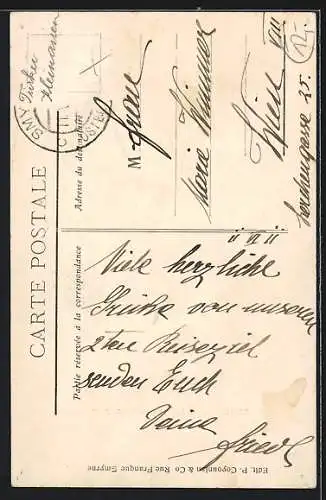 CARTE POSTALE
Partie réservée à la correspondance
Adresse du destinataire
Türkei
Kleinasien
SMY
M Frau
Marie Wimmer
Wien VIII
Lerchengasse 25.
12.
Viele herzliche
Grüße von unserem
2ten Reiseziel
senden Euch
Deine
Friedl
Edit. P. Coyounian & Co Rue Franque Smyrne